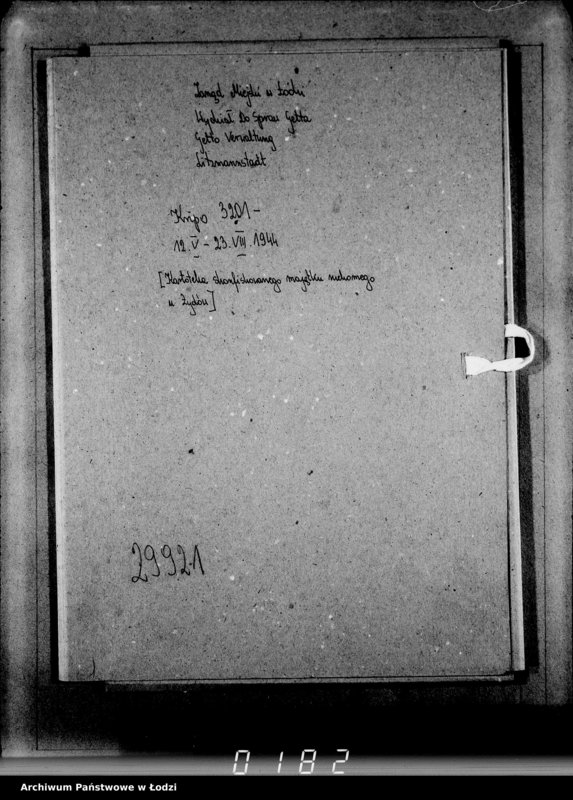 Zarząd Miejski w Łodzi
Wydział Do Spraw Getta
Getto Verwaltung
Litzmannstadt
Kripo 3201-
12.V - 23.VIII.1944
[Kartoteka skonfiskowanego majątku ruchomego
u Żydów]
29921
0182
Archiwum Państwowe w Łodzi